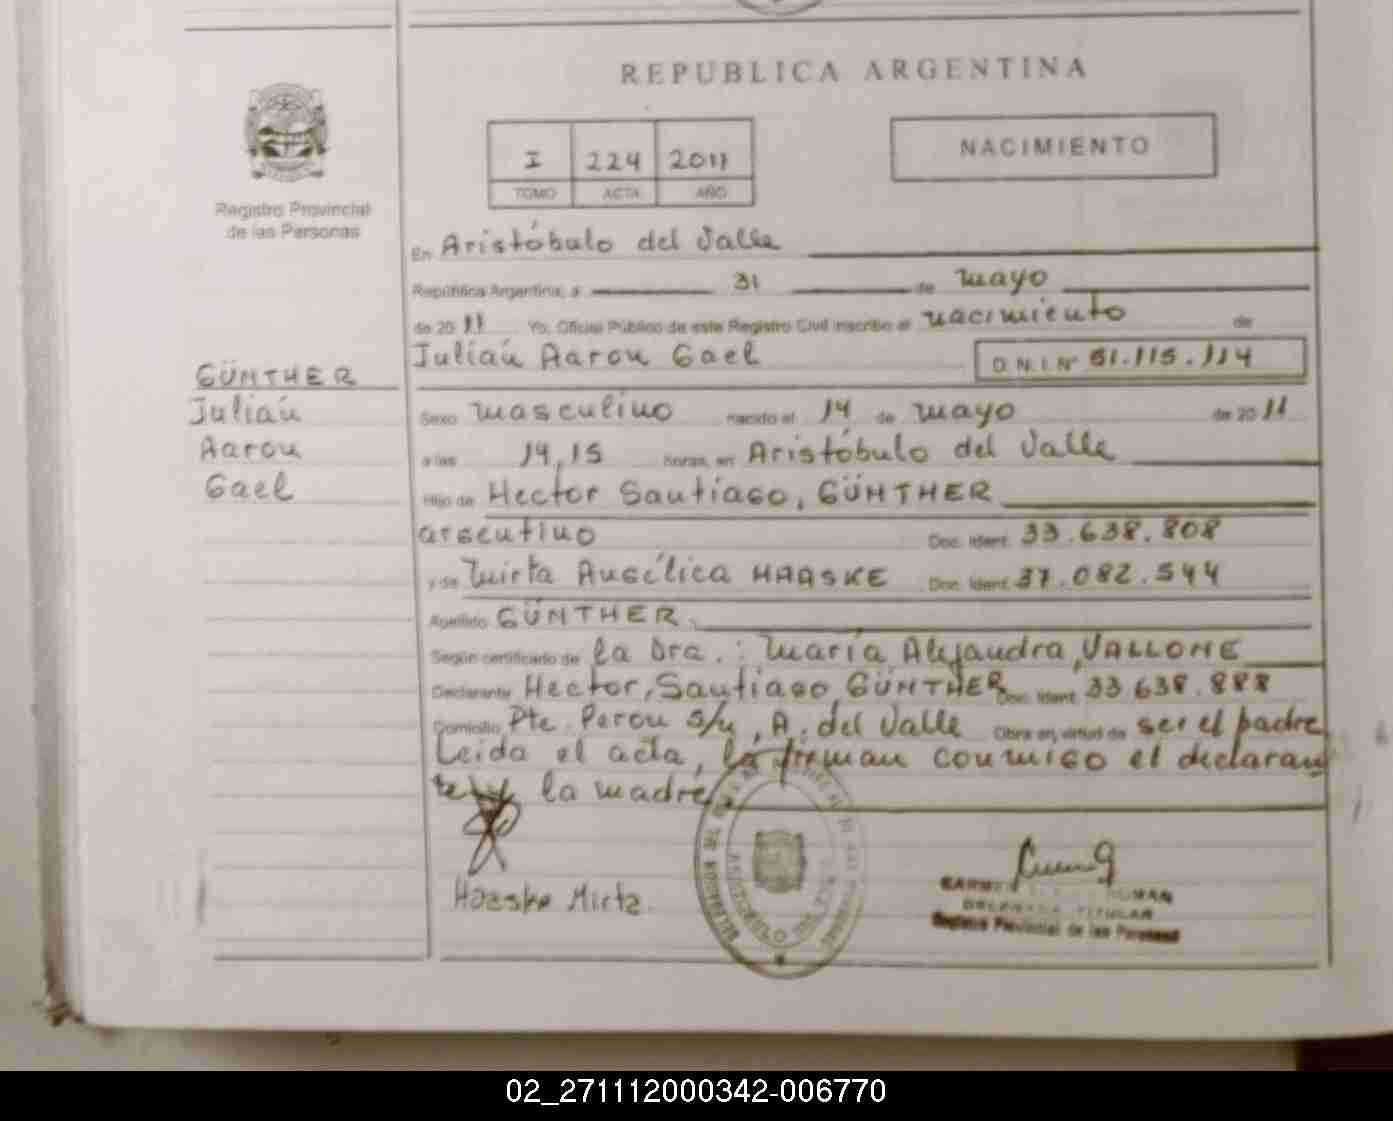 REPUBLICA ARGENTINA
I 224 2011
TOMO ACTA AÑO
NACIMIENTO
Registro Provincial
de las Personas
GÜNTHER
Julián
Aaron
Gael
En Aristóbulo del Valle
República Argentina, a 31 de mayo
de 2011 Yo, Oficial Público de este Registro Civil inscribo el nacimiento de
Julián Aaron Gael D.N.I. Nº 51.115.114
Sexo masculino nacido el 14 de mayo de 2011
a las 14,15 horas, en Aristóbulo del Valle
Hijo de Hector Santiago, GÜNTHER
argentino Doc. Ident. 33.638.808
y de Mirta Angélica HAASKE Doc. Ident. 37.082.544
Apellido GÜNTHER.
Según certificado de la Dra.: María Alejandra, VALLONE
Declarante Hector, Santiago GÜNTHER Doc. Ident. 33 638.888
Domicilio Pte. Peron s/n, A. del Valle Obra en virtud de ser el padre
Leida el acta, la firman conmigo el declaran
te y la madre.
Haaske Mirta
DELEGADA TITULAR
Registro Provincial de las Personas
02_271112000342-006770